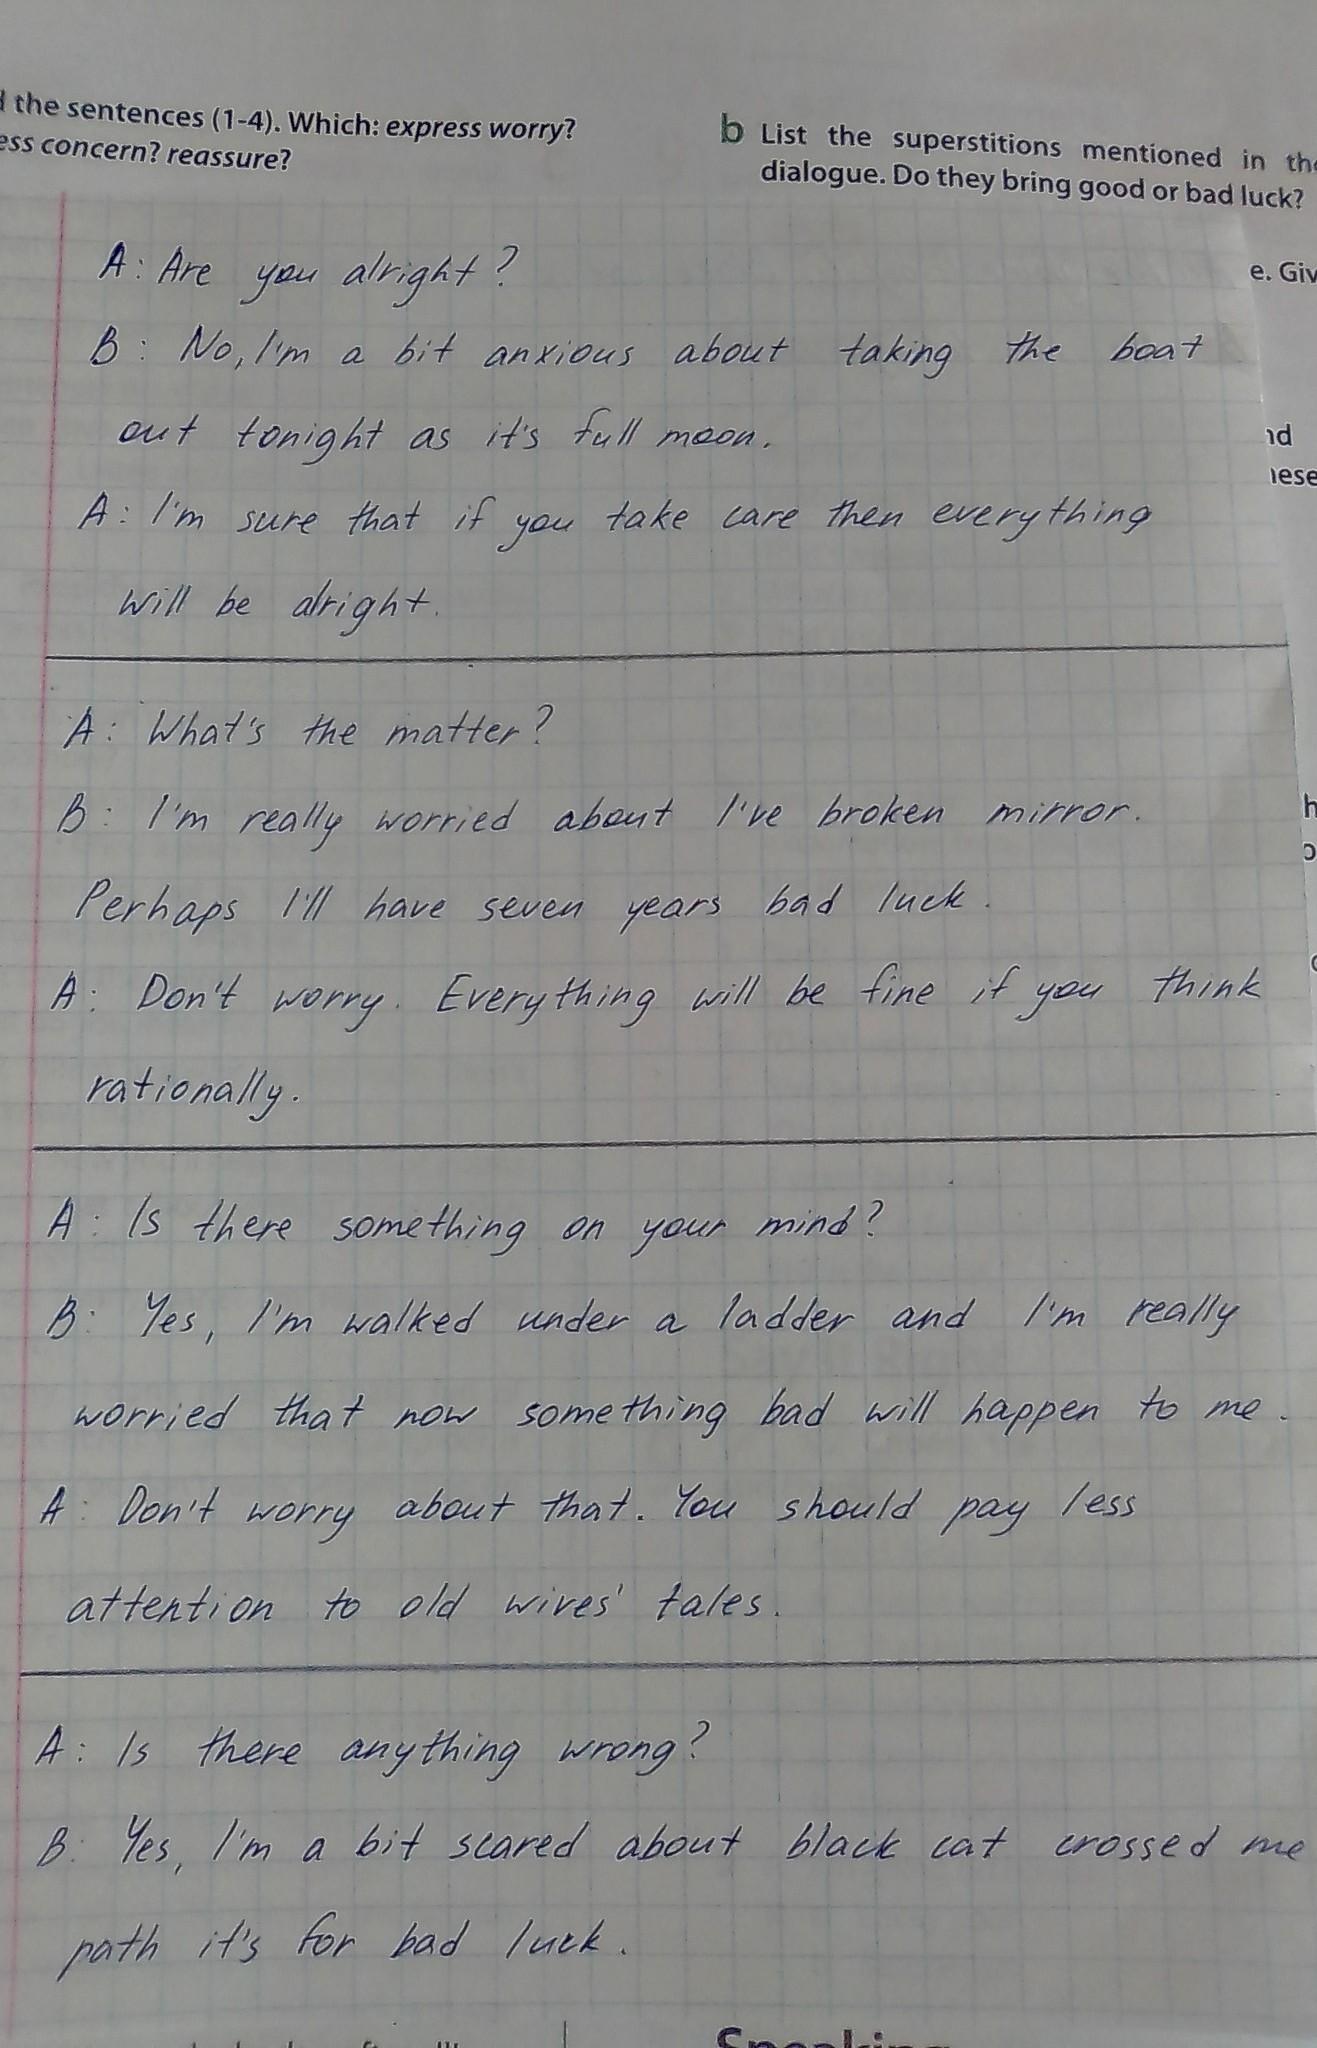 the sentences (1-4). Which: express worry?
concern? reassure?
b List the superstitions mentioned in
dialogue. Do they bring good or bad luck?
A: Are you alright?
B: No, I'm a bit anxious about taking the boat
out tonight as it's full moon.
A: I'm sure that if you take care then everything
will be alright.
A: What's the matter?
B: I'm really worried about I've broken mirror.
Perhaps I'll have seven years bad luck.
A: Don't worry. Everything will be fine if you think
rationally.
A: Is there something on your mind?
B: Yes, I'm walked under a ladder and I'm really
worried that now something bad will happen to me.
A: Don't worry about that. You should pay less
attention to old wives' tales.
A: Is there anything wrong?
B: Yes, I'm a bit scared about black cat crossed me
path it's for bad luck.
Speaking